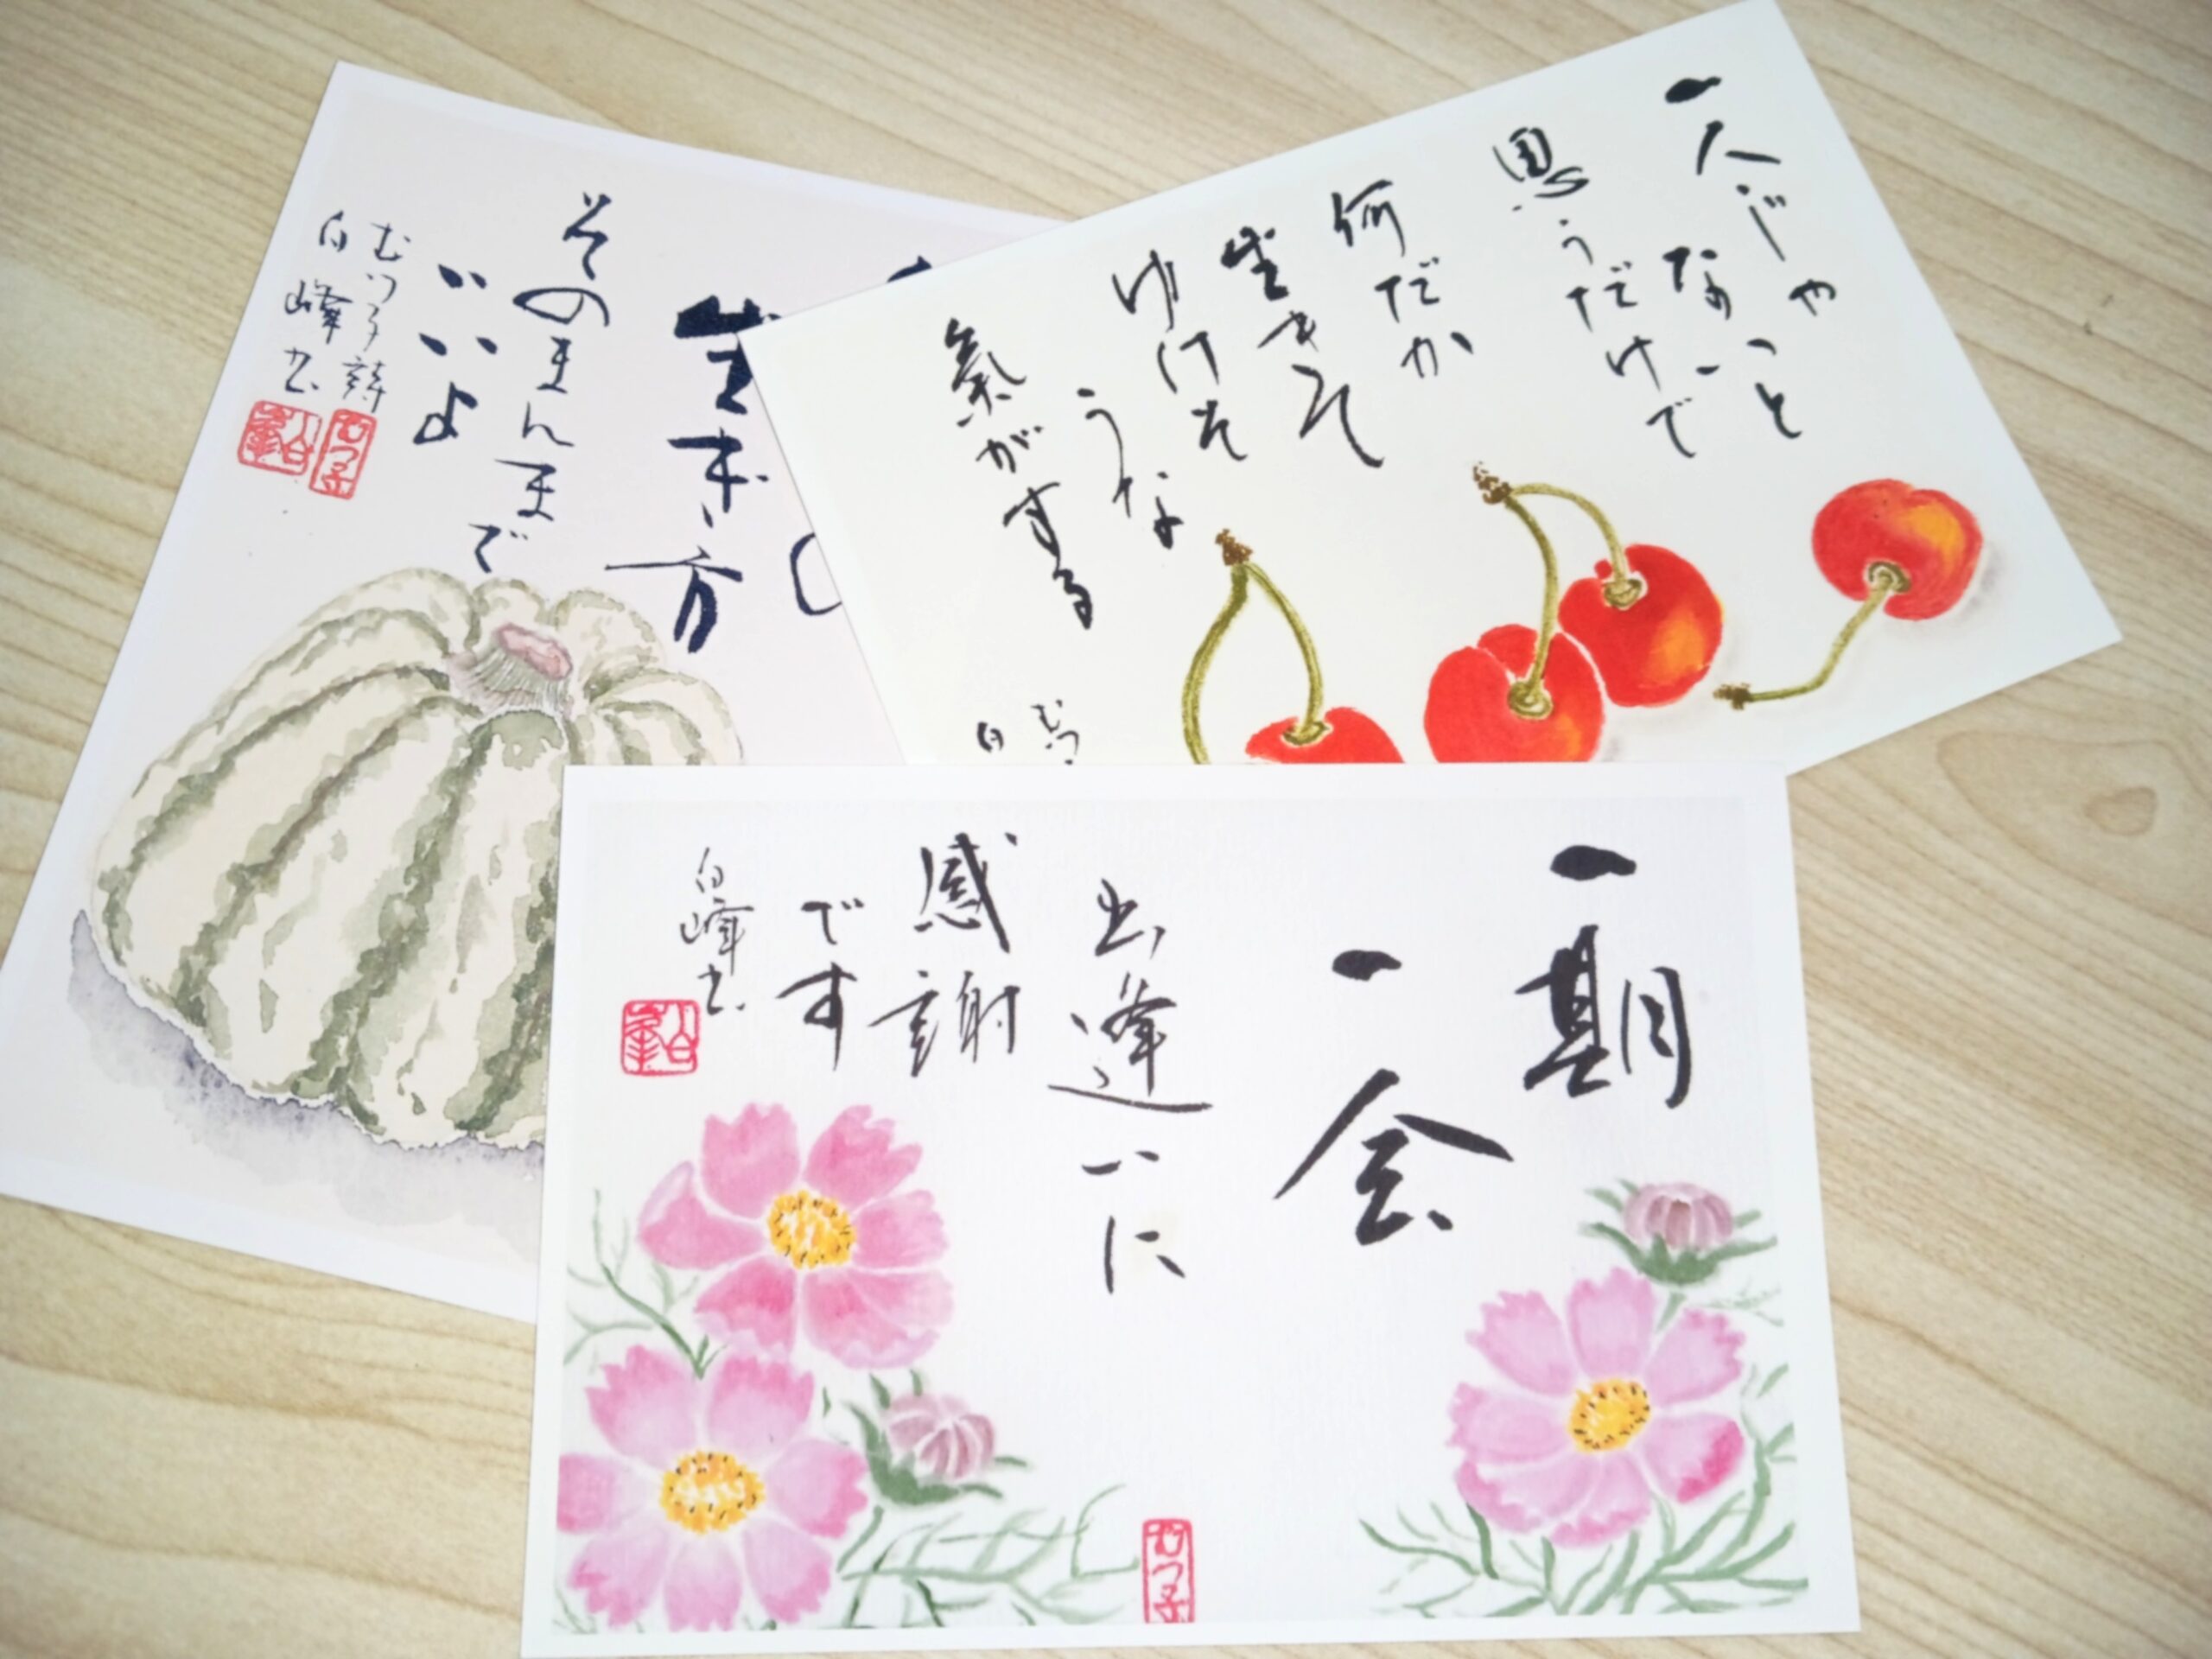 一人じゃ
ないと
思うだけで
何だか
生きて
ゆけそ
うな
氣がする
むつ
白
生き方
そのまんまで
いいよ
むつ子詩
むつ子
白峰書
白峰
一期
一会
出逢いに
感謝
です
白峰書
白峰
むつ子